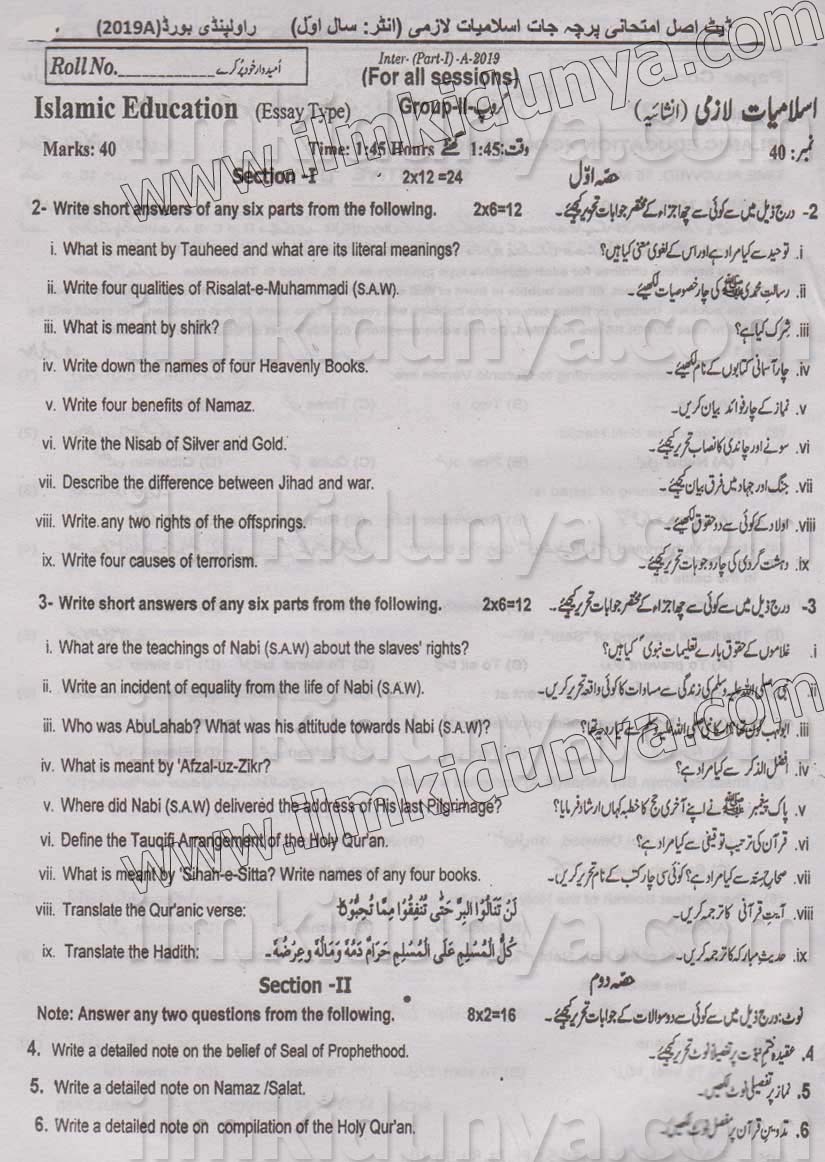 ٹھیٹ اصل امتحانی پرچہ جات اسلامیات لازمی (انٹر: سال اول) راولپنڈی بورڈ(2019A)
Roll No. ____________ اُمیدوار خود پُر کرے
Inter- (Part-I) -A-2019
(For all sessions)
Islamic Education (Essay Type) Group-II-گروپ اسلامیات لازمی (انشائیہ)
Marks: 40 Time: 1:45 Hours وقت: 1:45 گھنٹے نمبر: 40
Section -I 2x12 =24 حصہ اوّل
2- Write short answers of any six parts from the following. 2x6=12 2- درج ذیل میں سے کوئی سے چھ اجزاء کے مختصر جوابات تحریر کیجئے۔
i. What is meant by Tauheed and what are its literal meanings? i. توحید سے کیا مراد ہے اور اس کے لغوی معنی کیا ہیں؟
ii. Write four qualities of Risalat-e-Muhammadi (S.A.W). ii. رسالتِ محمدی ﷺ کی چار خصوصیات لکھیئے۔
iii. What is meant by shirk? iii. شرک کیا ہے؟
iv. Write down the names of four Heavenly Books. iv. چار آسمانی کتابوں کے نام لکھیئے۔
v. Write four benefits of Namaz. v. نماز کے چار فوائد بیان کریں۔
vi. Write the Nisab of Silver and Gold. vi. سونے اور چاندی کا نصاب تحریر کیجئے۔
vii. Describe the difference between Jihad and war. vii. جنگ اور جہاد میں فرق بیان کیجئے۔
viii. Write any two rights of the offsprings. viii. اولاد کے کوئی سے دو حقوق لکھیئے۔
ix. Write four causes of terrorism. ix. دہشت گردی کی چار وجوہات تحریر کیجئے۔
3- Write short answers of any six parts from the following. 2x6=12 3- درج ذیل میں سے کوئی سے چھ اجزاء کے مختصر جوابات تحریر کیجئے۔
i. What are the teachings of Nabi (S.A.W) about the slaves' rights? i. غلاموں کے حقوق بارے تعلیمات نبوی کیا ہیں؟
ii. Write an incident of equality from the life of Nabi (S.A.W). ii. نبی صلی اللہ علیہ وسلم کی زندگی سے مساوات کا کوئی واقعہ تحریر کریں۔
iii. Who was AbuLahab? What was his attitude towards Nabi (S.A.W)? iii. ابولہب کون تھا؟ اس کا نبی صلی اللہ علیہ وسلم سے کیا رویہ تھا؟
iv. What is meant by 'Afzal-uz-Zikr? iv. افضل الذکر سے کیا مراد ہے؟
v. Where did Nabi (S.A.W) delivered the address of His last Pilgrimage? v. پاک پیغمبر ﷺ نے اپنے آخری حج کا خطبہ کہاں ارشاد فرمایا؟
vi. Define the Tauqifi Arrangement of the Holy Qur'an. vi. قرآن کی ترتیب توقیفی سے کیا مراد ہے؟
vii. What is meant by 'Sihah-e-Sitta? Write names of any four books. vii. صحاح ستہ سے کیا مراد ہے؟ کوئی سی چار کتب کے نام تحریر کریں۔
viii. Translate the Qur'anic verse: لَنْ تَنَالُوا الْبِرَّ حَتّٰی تُنْفِقُوْا مِمَّا تُحِبُّوْنَ viii. آیتِ قرآنی کا ترجمہ کریں۔
ix. Translate the Hadith: کُلُّ الْمُسْلِمِ عَلَی الْمُسْلِمِ حَرَامٌ دَمُهٗ وَمَالُهٗ وَعِرْضُهٗ۔ ix. حدیثِ مبارکہ کا ترجمہ کریں۔
Section -II حصہ دوم
Note: Answer any two questions from the following. 8x2=16 نوٹ: درج ذیل میں سے کوئی سے دو سوالات کے جوابات تحریر کیجئے۔
4. Write a detailed note on the belief of Seal of Prophethood. 4. عقیدہ ختم نبوت پر تفصیلاً نوٹ تحریر کیجئے۔
5. Write a detailed note on Namaz /Salat. 5. نماز پر تفصیلی نوٹ لکھیں۔
6. Write a detailed note on compilation of the Holy Qur'an. 6. تدوینِ قرآن پر مفصل نوٹ لکھیں۔
www.ilmkidunya.com
www.ilmkidunya.com
ilmkidunya.com
ilmkidunya.com
ilmkidunya.com
ilmkidunya.com
ilmkidunya.com
ilmkidunya.com